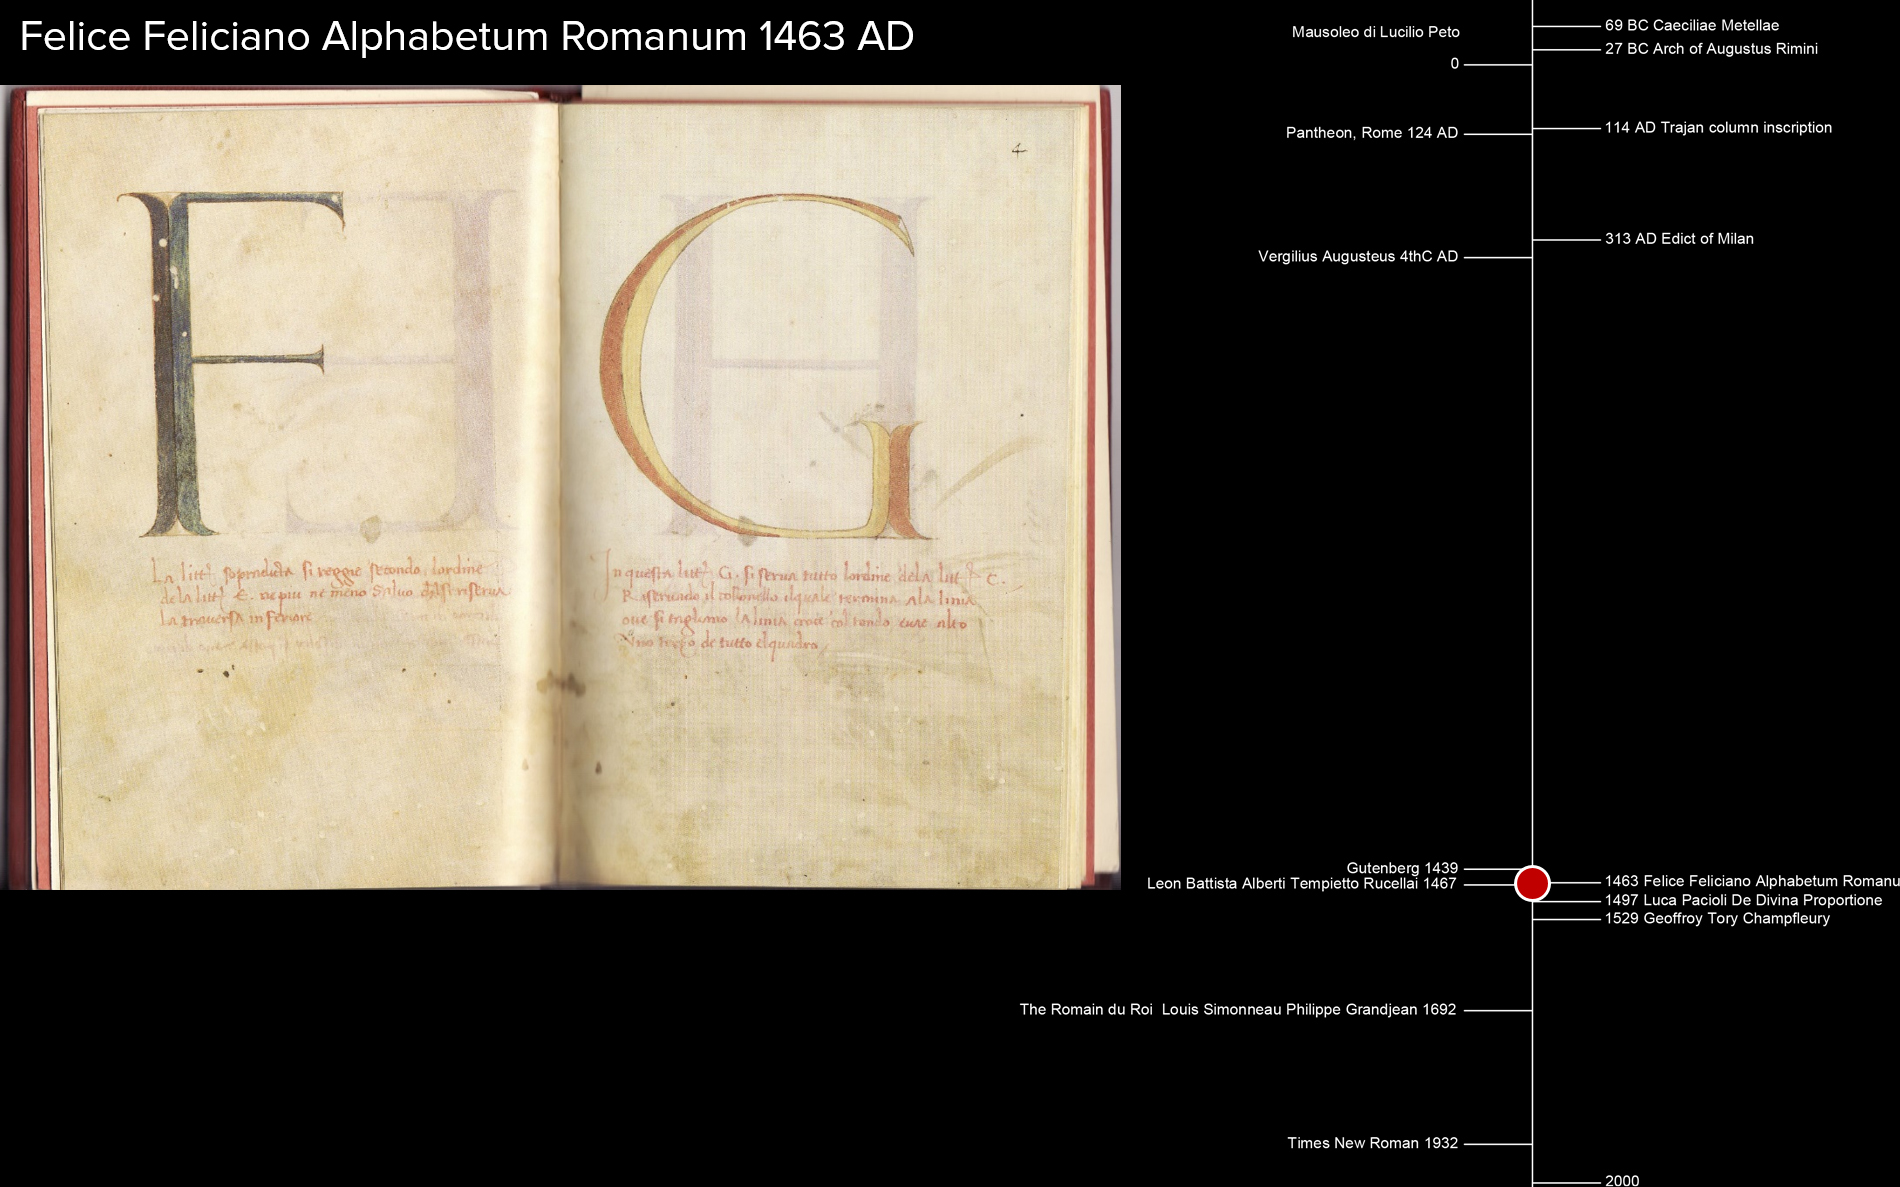 Felice Feliciano Alphabetum Romanum 1463 AD
4
F
G
La litt. sopradicta si reggie secondo lordine
de la litt. E. ne piu ne meno Salvo
La traversa inferiore
In questa litt. G. si serva tutto lordine dela litt. C.
Riservando il colonello ilquale termina ala linia
oue si tagliano la linia croce col tondo, alto
Uno terzo de tutto el quadro
Mausoleo di Lucilio Peto
69 BC Caeciliae Metellae
27 BC Arch of Augustus Rimini
0
114 AD Trajan column inscription
Pantheon, Rome 124 AD
313 AD Edict of Milan
Vergilius Augusteus 4thC AD
Gutenberg 1439
1463 Felice Feliciano Alphabetum Romanu
Leon Battista Alberti Tempietto Rucellai 1467
1497 Luca Pacioli De Divina Proportione
1529 Geoffroy Tory Champfleury
The Romain du Roi Louis Simonneau Philippe Grandjean 1692
Times New Roman 1932
2000